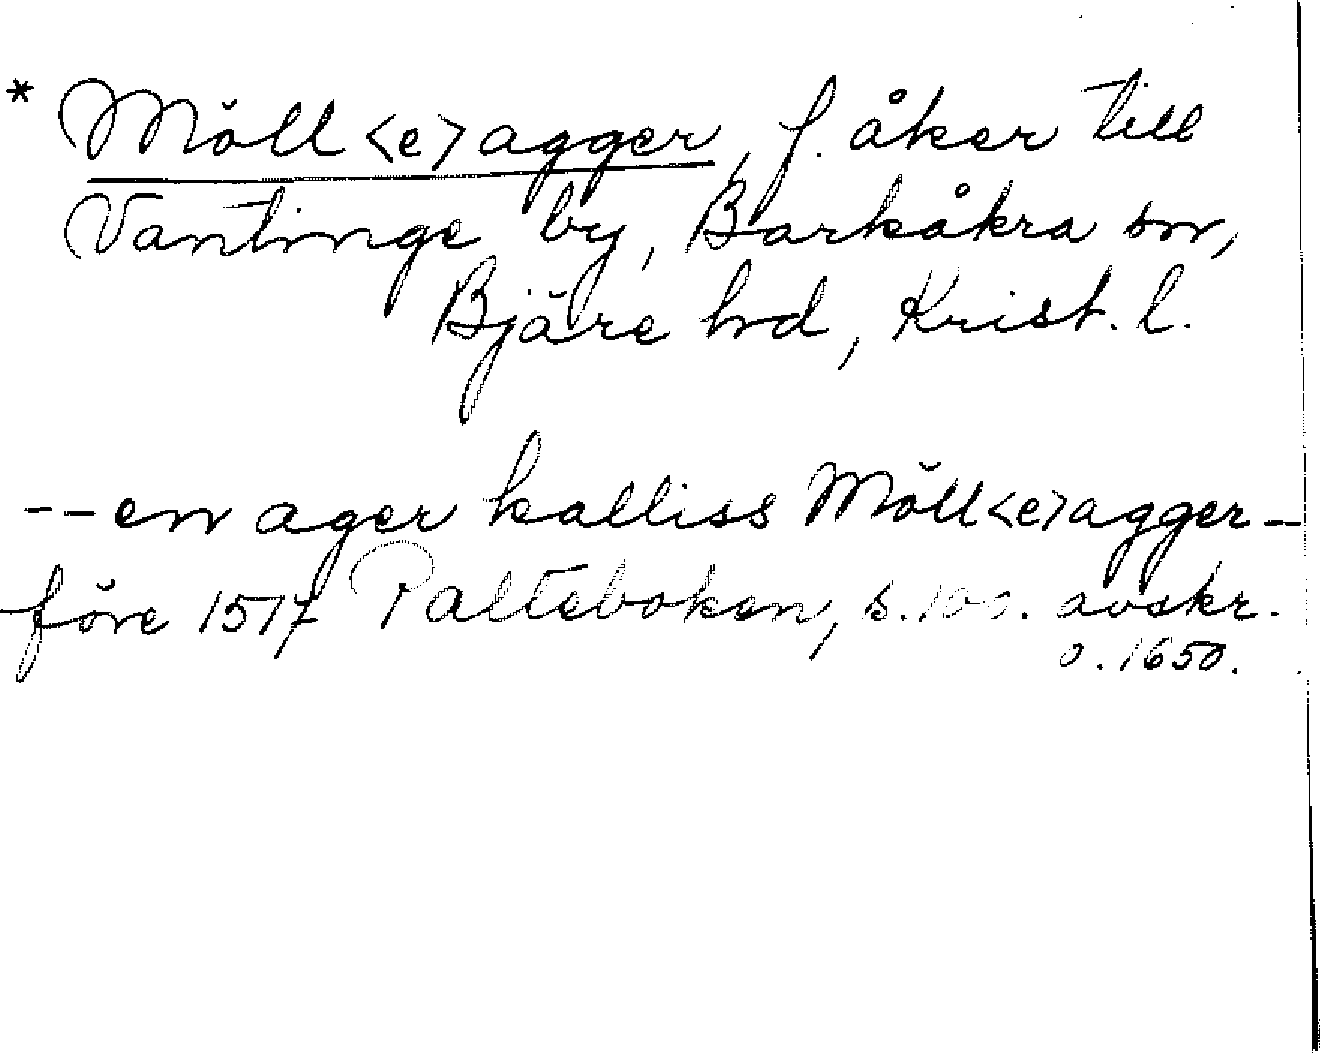 * Möll<e>agger, f. åker till
Vantinge by, Barkåkra sn,
Bjäre hd, Krist. l.
-- en ager kalliss Möll<e>agger –
före 1517 Palteboken, s. 100. avskr.
o. 1650.